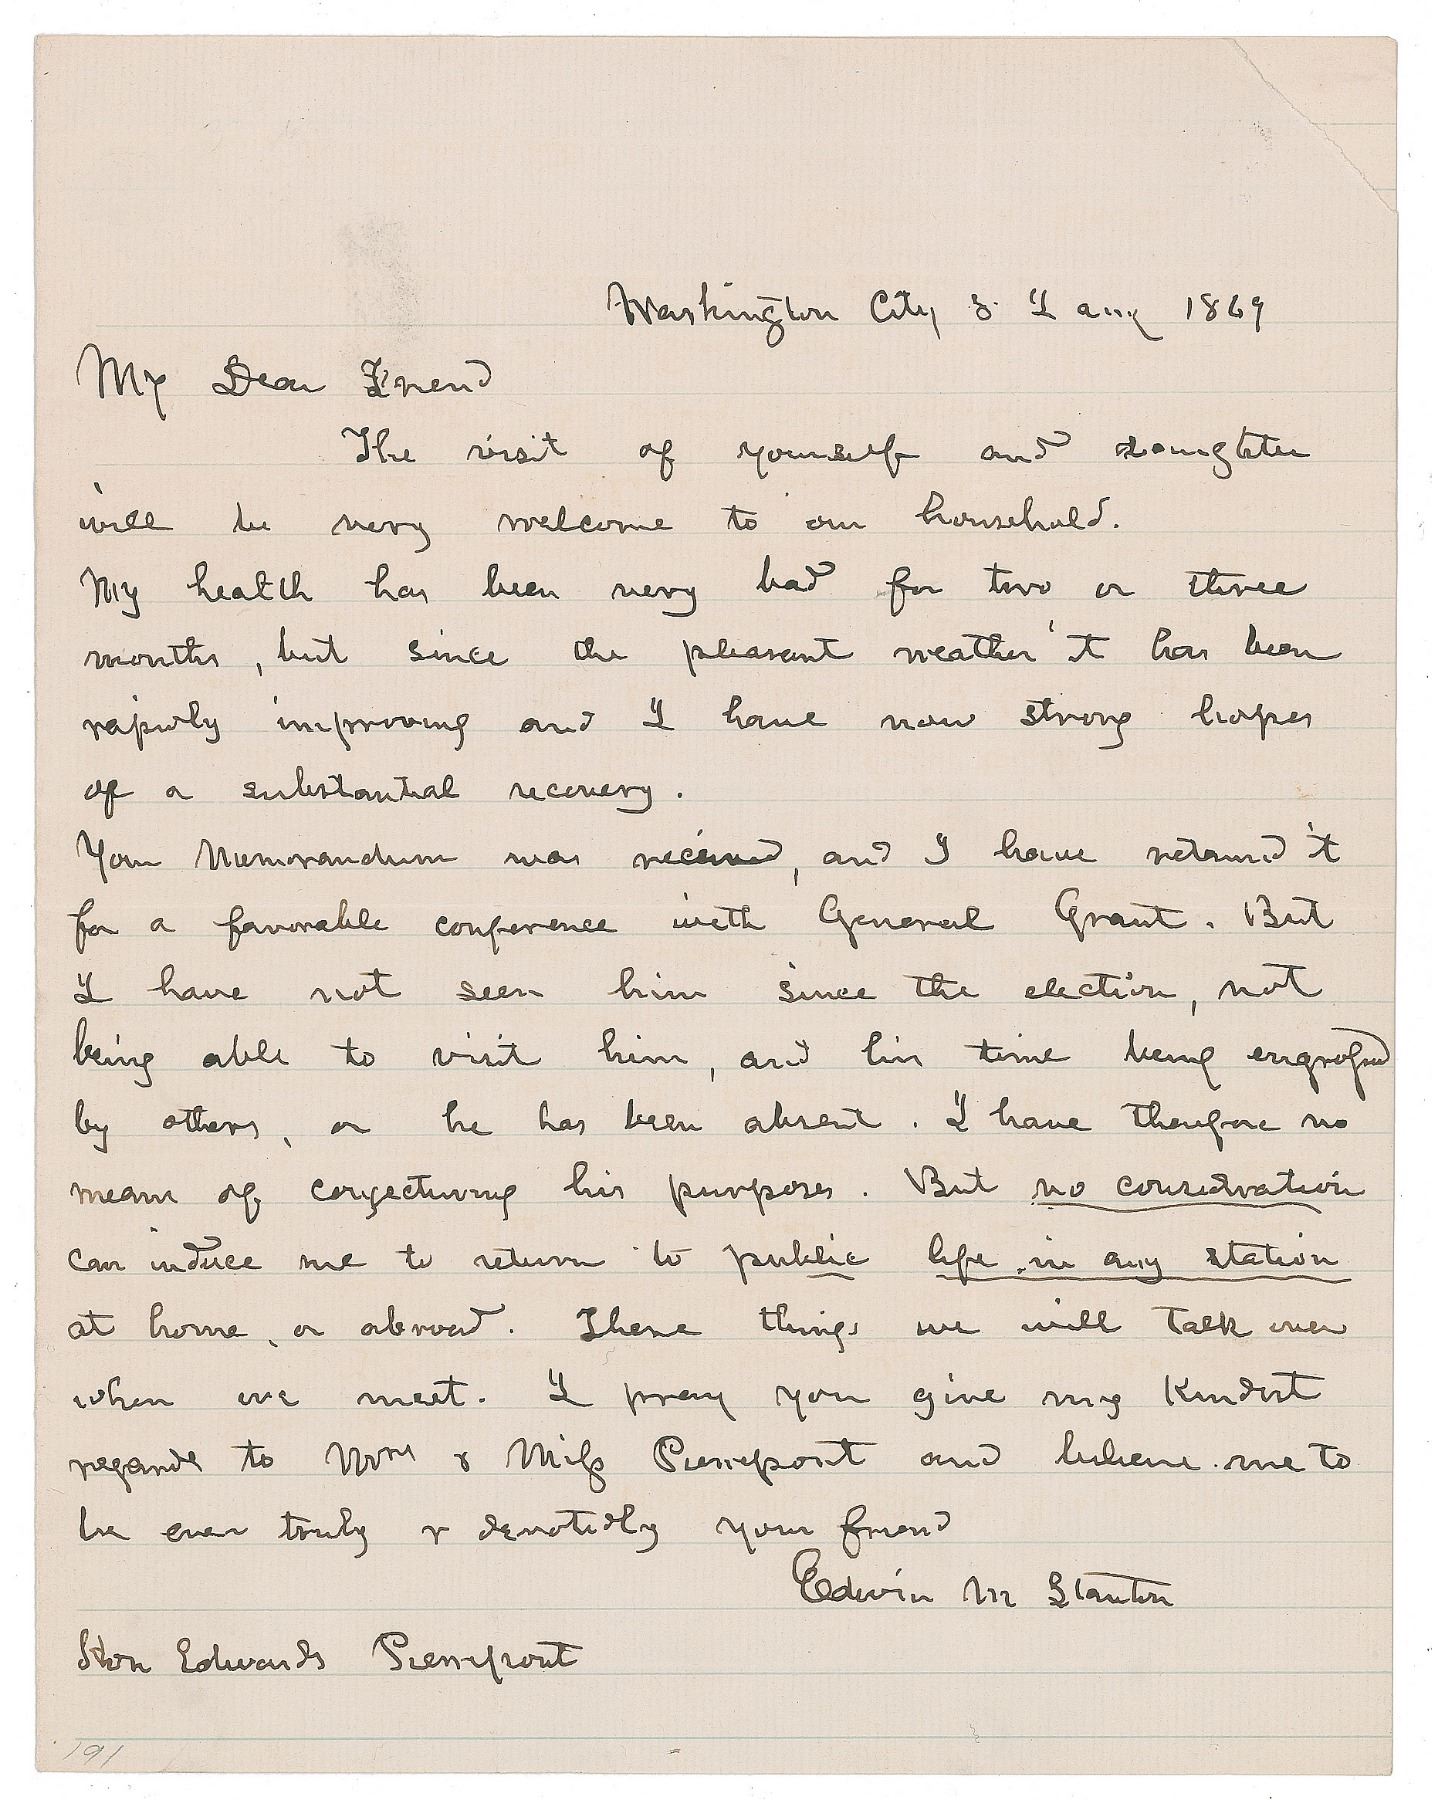 Washington City Aug 1869
My Dear Friend
The visit of yourself and daughter
will be very welcome to our household.
My health has been very bad for two or three
months, but since the pleasant weather it has been
rapidly improving and I have now strong hopes
of a substantial recovery.
Your Memorandum was received, and I have retained it
for a favorable conference with General Grant. But
I have not seen him since the election, not
being able to visit him, and his time being engrossed
by others, or he has been absent. I have therefore no
means of conjecturing his purposes. But no consideration
can induce me to return to public life in any station
at home, or abroad. These things we will talk over
when we meet. I pray you give my kindest
regards to Mrs & Miss Pierrepont and believe me to
be ever truly & devotedly your friend
Edwin M Stanton
Hon Edwards Pierrepont
191